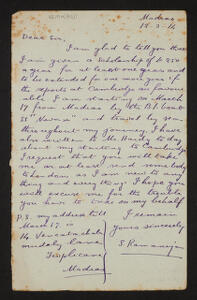 Madras
Dear Sir,
I am glad to tell you that
I am given a scholarship of £ 250
a year for at least one year and
to be extended for one year if
the reports at Cambridge are favour
able. I am starting on March
17 from Madras by the B.I. boat
SS "Nevasa" and travel by sea
throughout my journey. I have
also written to Mr. Hardy to day
about my starting to Cambridge.
I request that you will take
me or at least send somebody
to London as I am new to any
thing and everything. I hope you
will excuse me for the trouble
you have to take on my behalf
I remain
Yours sincerely
S. Ramanujan
P.S. my address till
March 17 is
14 Venkatachala
mudaly Lane
Triplicane
Madras